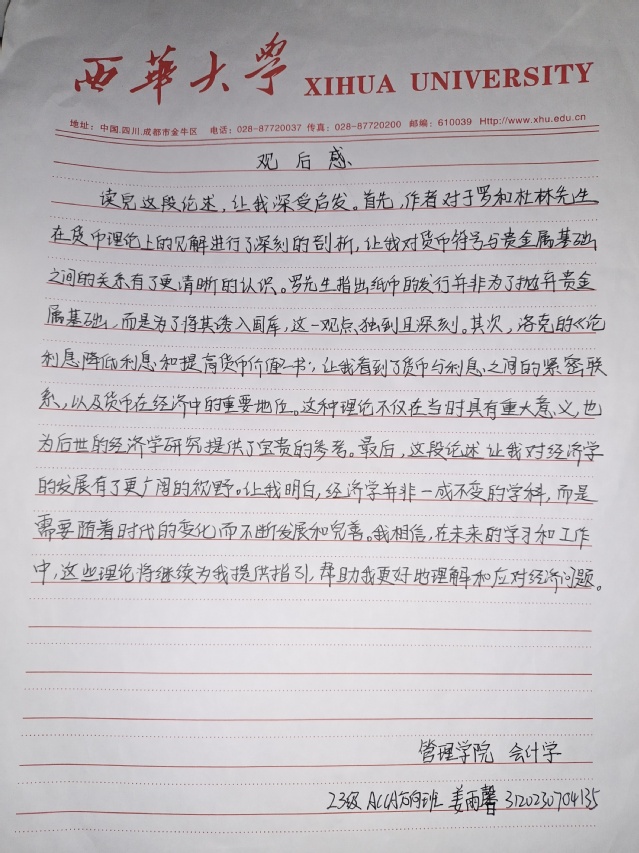 西華大學 XIHUA UNIVERSITY
地址：中国.四川.成都市金牛区 电话：028-87720037 传真：028-87720200 邮编：610039 Http://www.xhu.edu.cn
观后感
读完这段论述，让我深受启发。首先，作者对于罗和杜林先生
在货币理论上的见解进行了深刻的剖析，让我对货币符号与贵金属基础
之间的关系有了更清晰的认识。罗先生指出纸币的发行并非为了抛弃贵金
属基础，而是为了将其诱入国库，这一观点独到且深刻。其次，洛克的《论
利息降低利息和提高货币价值》一书，让我看到了货币与利息之间的紧密联
系，以及货币在经济中的重要地位。这种理论不仅在当时具有重大意义，也
为后世的经济学研究提供了宝贵的参考。最后，这段论述让我对经济学
的发展有了更广阔的视野。让我明白，经济学并非一成不变的学科，而是
需要随着时代的变化而不断发展和完善。我相信，在未来的学习和工作
中，这些理论将继续为我提供指引，帮助我更好地理解和应对经济问题。
管理学院 会计学
23级 ACCA方向班 姜雨馨 3120230704135